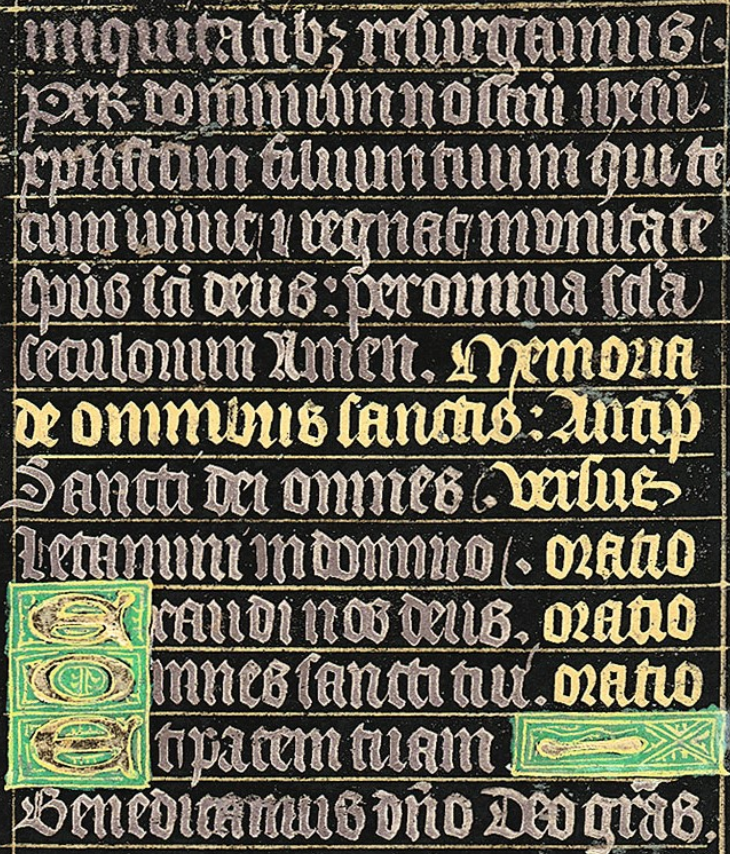 iniquitatibꝫ resurgamus.
Per dominum nostrū ihesū.
xpristum filium tuum qui te
cum viuit ⁊ regnat in vnitate
spūs sc̄i deus: per omnia scl̄a
seculorum Amen. Memoria
de omnibus sanctis: Antip̄
Sancti dei omnes. versus
Letamini in domino. oratio
Exaudi nos deus. oratio
Omnes sancti tui. oratio
Et pacem tuam
Benedicamus dn̄o Deo grās.